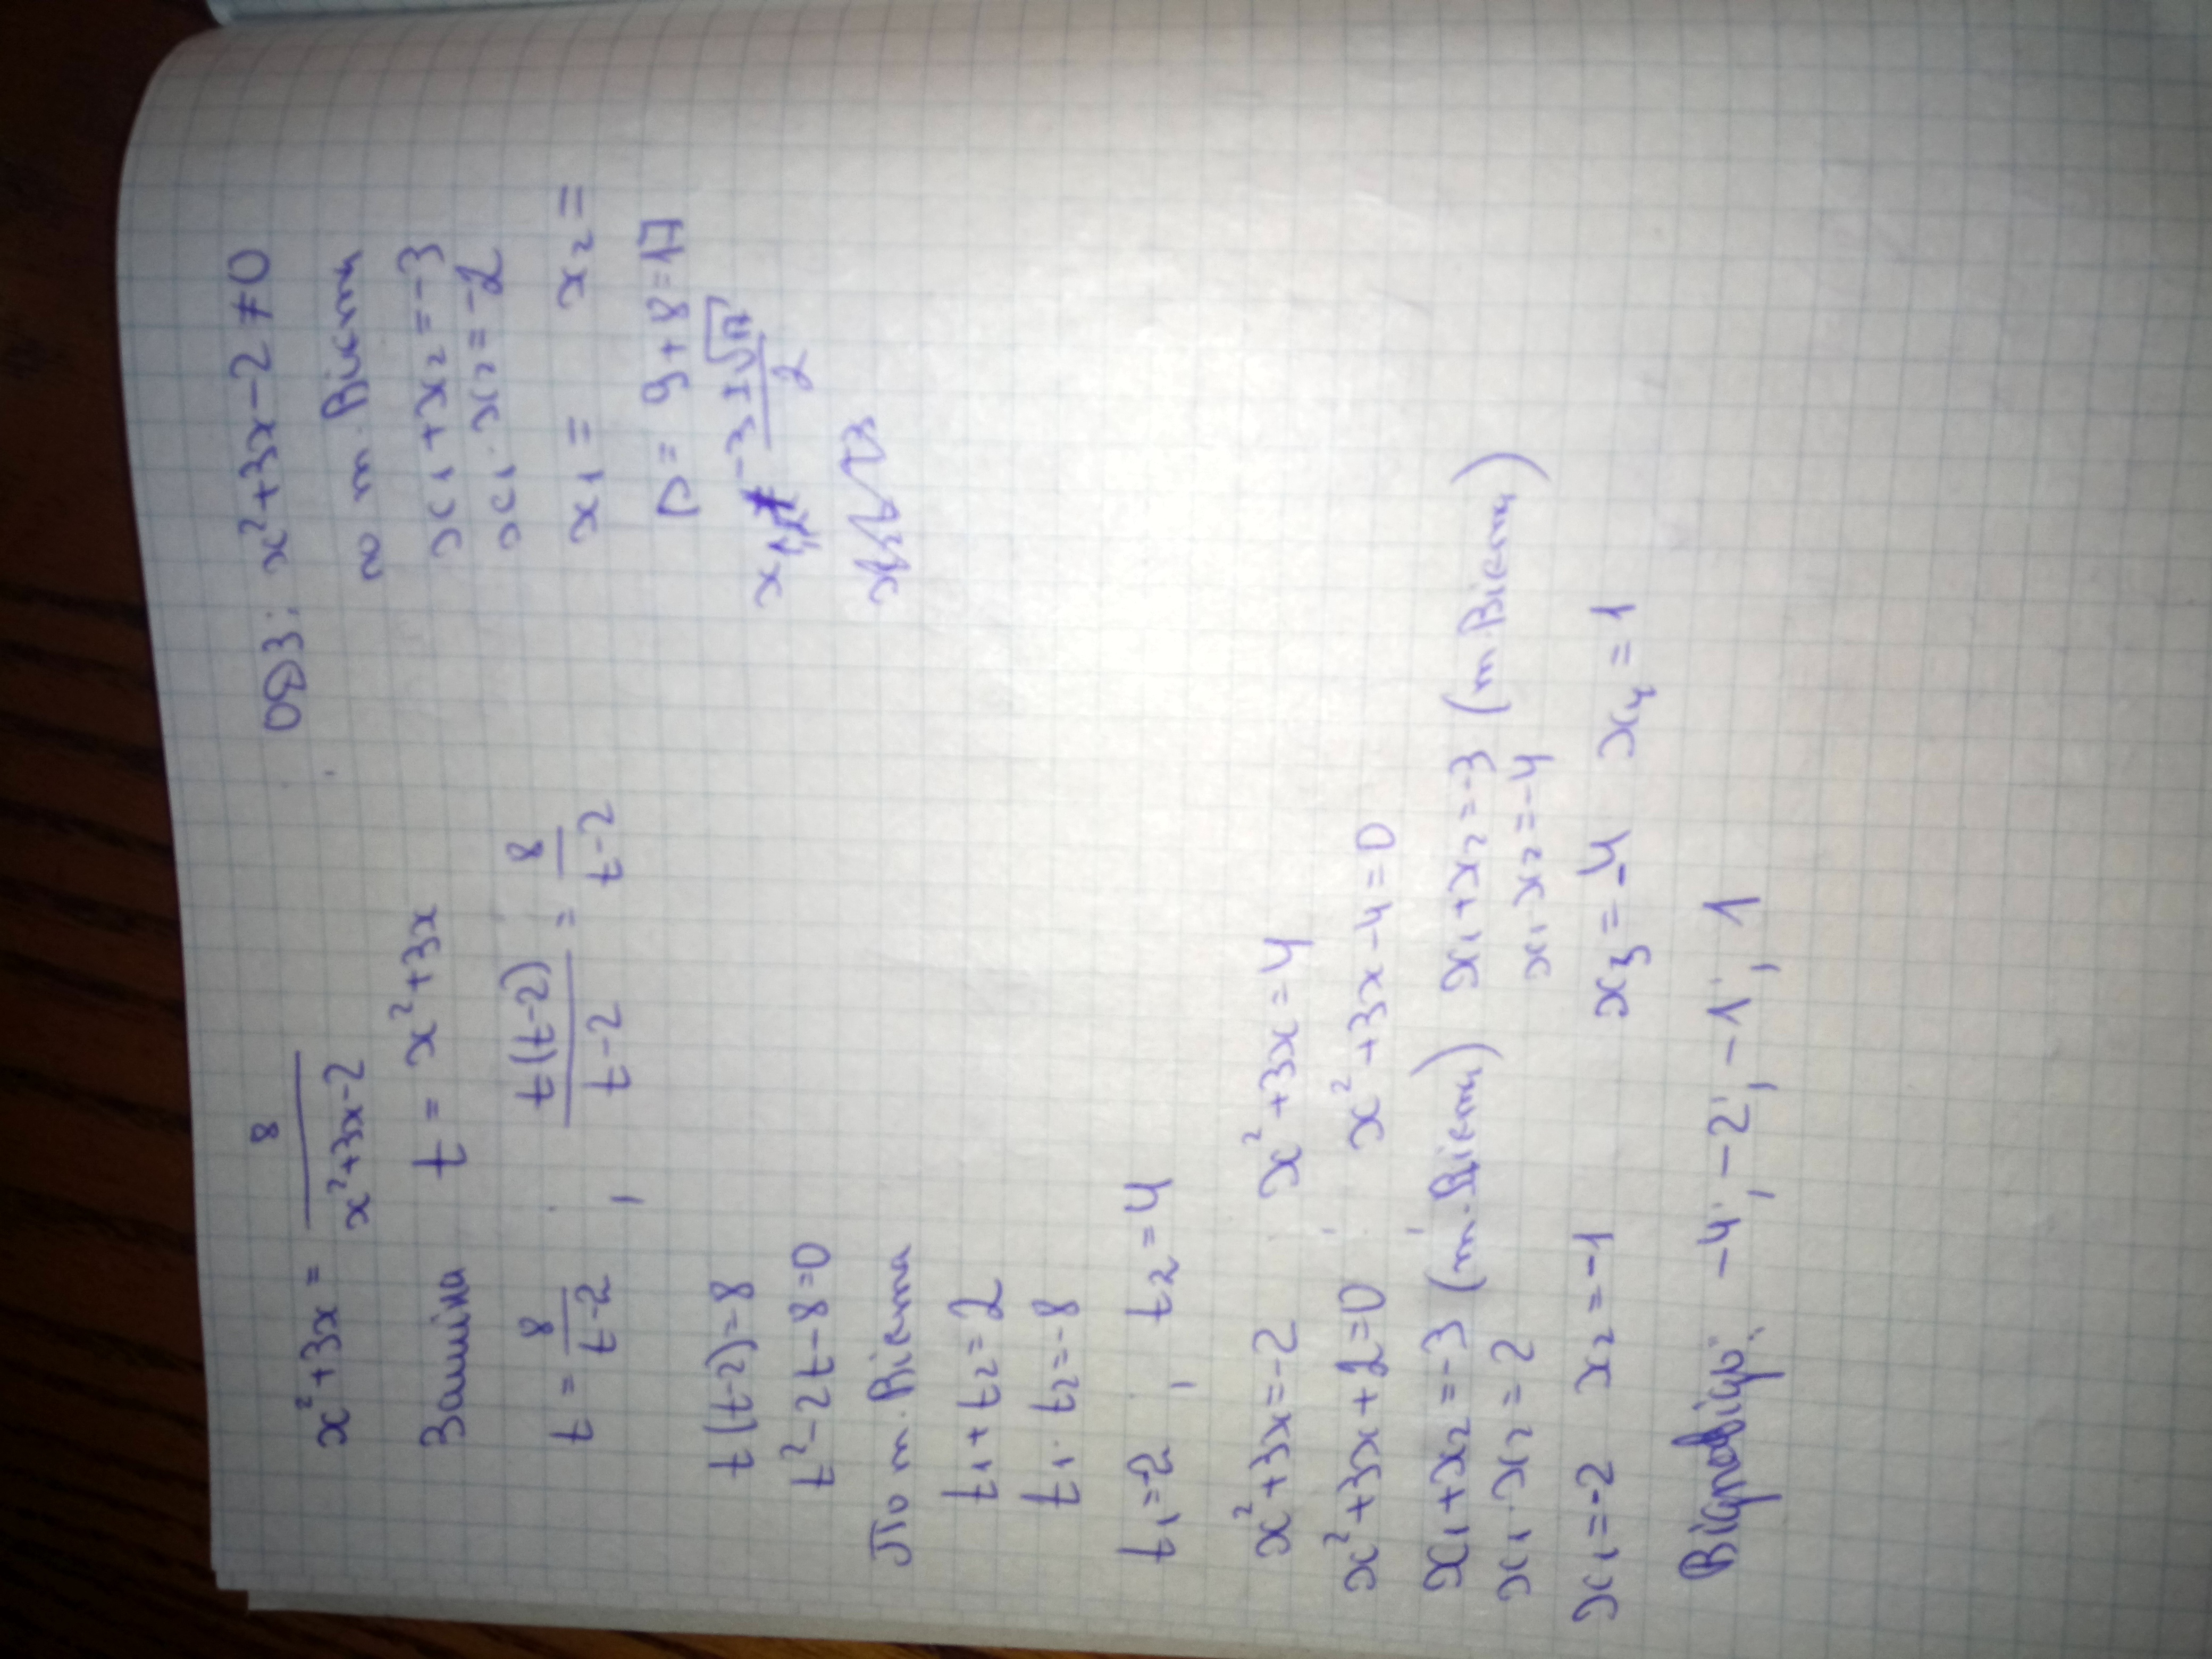 x²+3x = 8/(x²+3x-2)
Заміна t = x²+3x
t = 8/(t-2) , t(t-2)/(t-2) = 8/(t-2)
t(t-2)=8
t²-2t-8=0
По т. Вієта
t₁+t₂=2
t₁·t₂=-8
t₁=-2 , t₂=4
x²+3x=-2 x²+3x=4
x²+3x+2=0 x²+3x-4=0
x₁+x₂=-3 (т. Вієта) x₁+x₂=-3 (т. Вієта)
x₁·x₂=2 x₁x₂=-4
x₁=-2 x₂=-1 x₃=-4 x₄=1
Відповідь: -4; -2; -1; 1
ОДЗ: x²+3x-2≠0
по т. Вієта
x₁+x₂=-3
x₁·x₂=-2
x₁= x₂=
D= 9+8=17
-3±√17/2